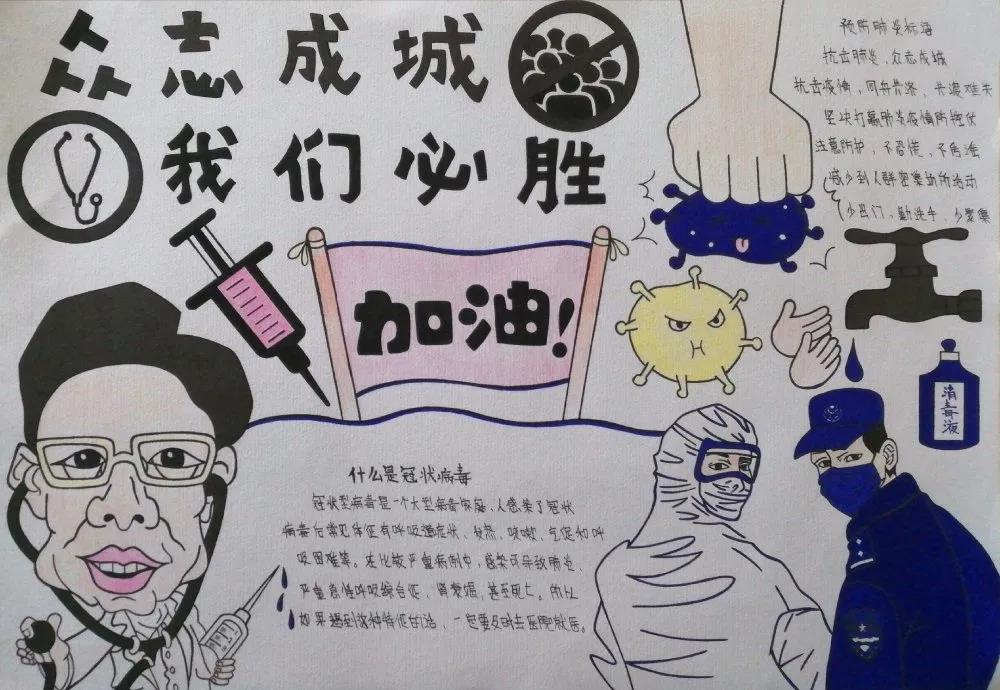 众志成城
我们必胜
加油!
预防肺炎标语
抗击肺炎,众志成城
抗击疫情,同舟共济、共渡难关
坚决打赢肺炎疫情防控仗
注意防护,不恐慌、不信谣
减少到人群密集场所活动
少出门,勤洗手、少聚集
消毒液
什么是冠状病毒
冠状型病毒是一个大型病毒家庭,人感染了冠状
病毒后常见体征有呼吸道症状、发热、咳嗽、气促和呼
吸困难等。在比较严重病例中,感染可导致肺炎、
严重急性呼吸综合征、肾衰竭、甚至死亡。所以
如果遇到这种特征的话,一定要及时去医院就医。